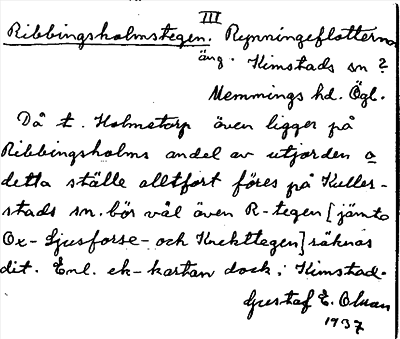 III
Ribbingsholmstegen. Rynningeflottarna
äng. Kimstads sn?
Memmings hd. Ögl.
Då t. Holmstorp även ligger på
Ribbingsholms andel av utjorden o
detta ställe alltfort föres på Kuller-
stads sn. bör väl även R-tegen [jämte
Ox- Ljusforse- och Knekttegen] räknas
dit. Enl. ek-kartan dock i Kimstad.
Gustaf E. Olsson
1937